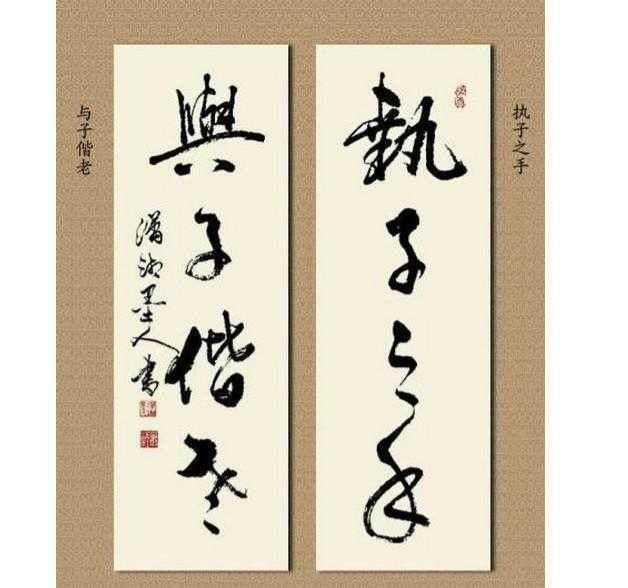 执子之手
執子之手
與子偕老
瀟湘墨人書
与子偕老